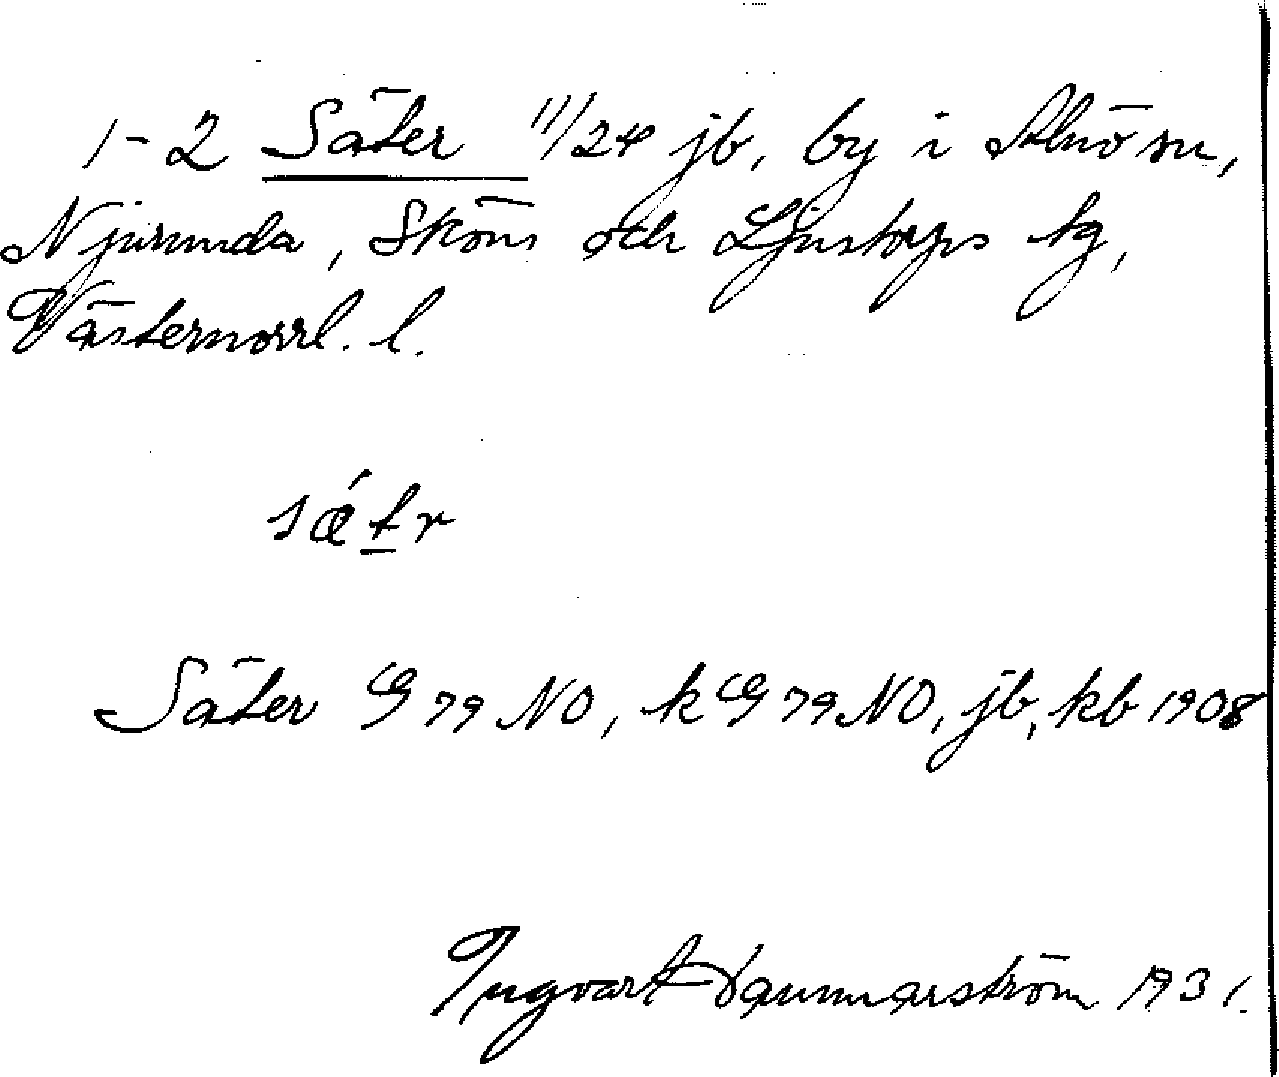 1-2 Säter 11/24 jb, by i Alnö sn,
Njurunda, Sköns och Ljustorps tg,
Västernorrl. l.
sǽt̲r
Säter G 79 NO, k G 79 NO, jb, kb 1908
Ingvart Dannarström 1931.